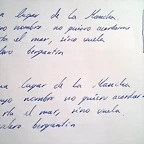 n lugar de la Mancha
yo nombre no quiero acordarm
rta el mar, sino vuela
elero bergantín
un lugar de la Mancha
uyo nombre no quiero acordar
rta el mar, sino vuela
velero bergantín